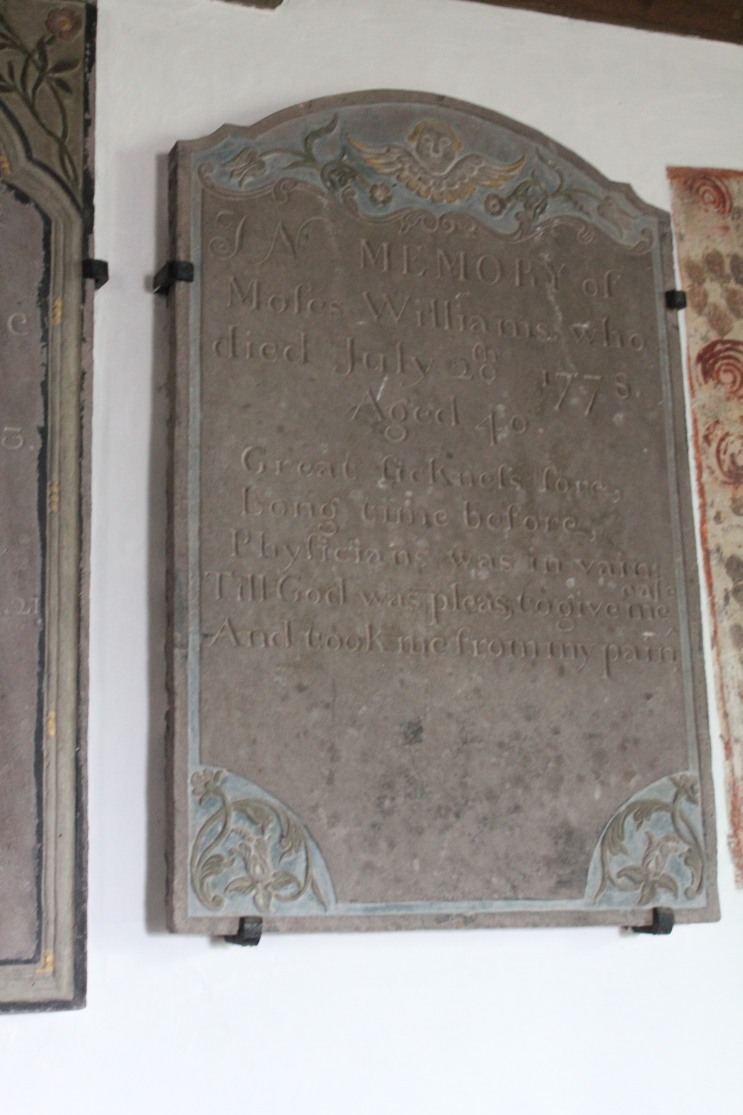 IN MEMORY of
Moſes Williams who
died July 28th 1778.
Aged 40
Great ſickneſs ſore,
Long time before,
Phyſicians was in vain,
Till God was pleas, to give me eaſe
And took me from my pain
21